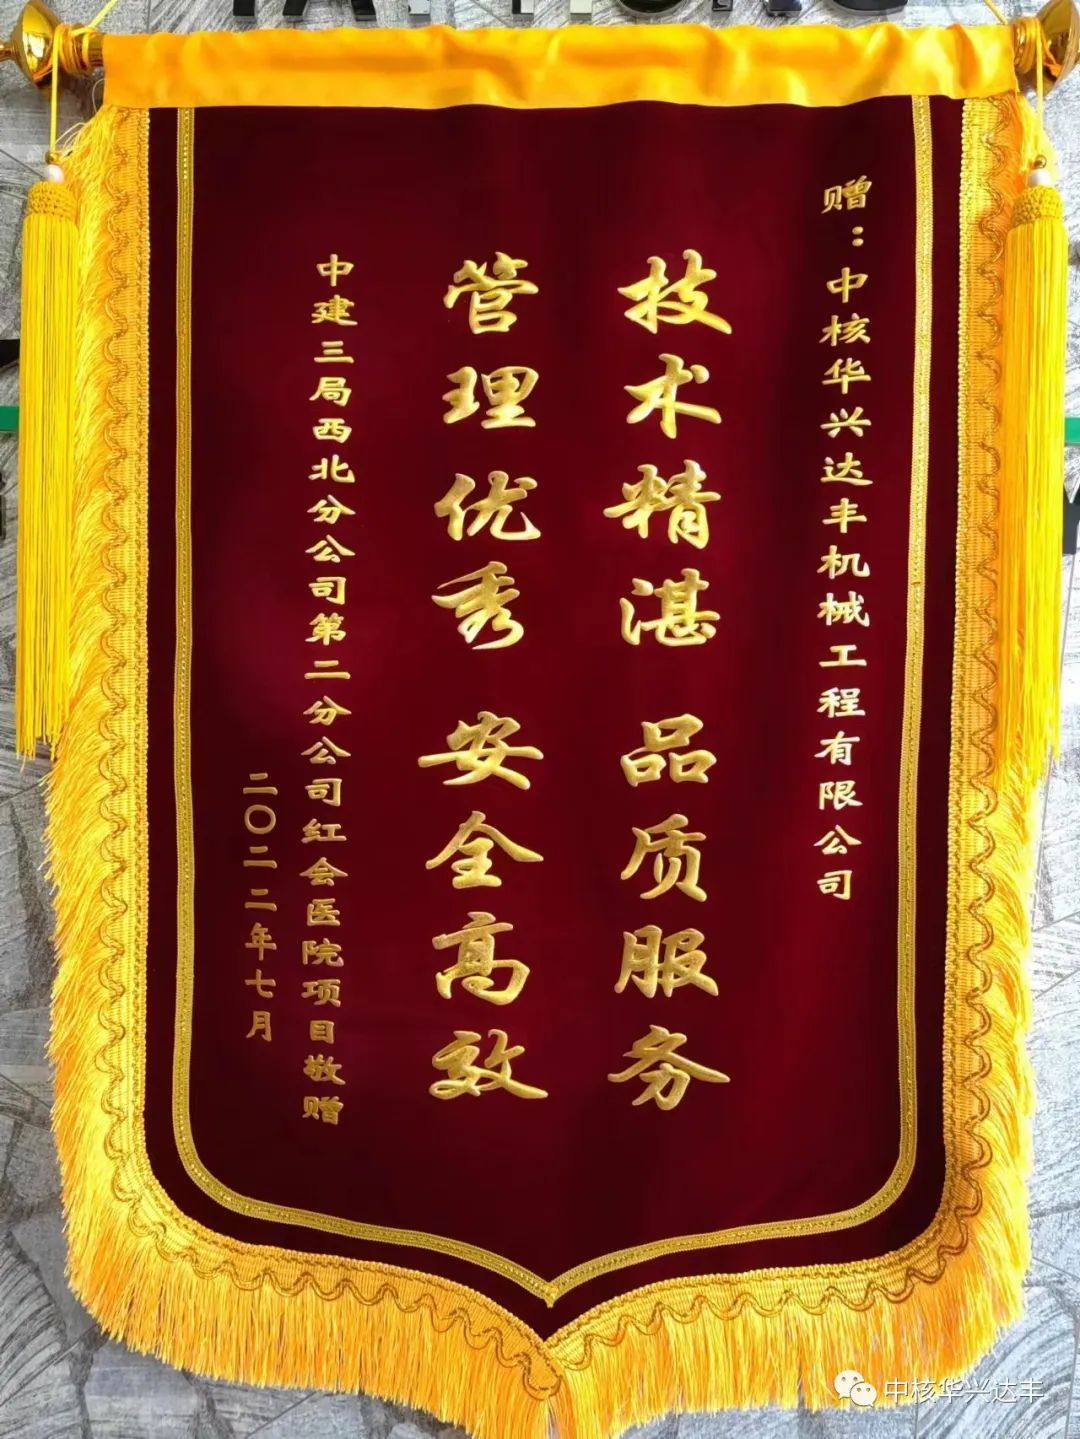 赠：中核华兴达丰机械工程有限公司
技术精湛 品质服务
管理优秀 安全高效
中建三局西北分公司第二分公司红会医院项目敬赠
二〇二二年七月
中核华兴达丰